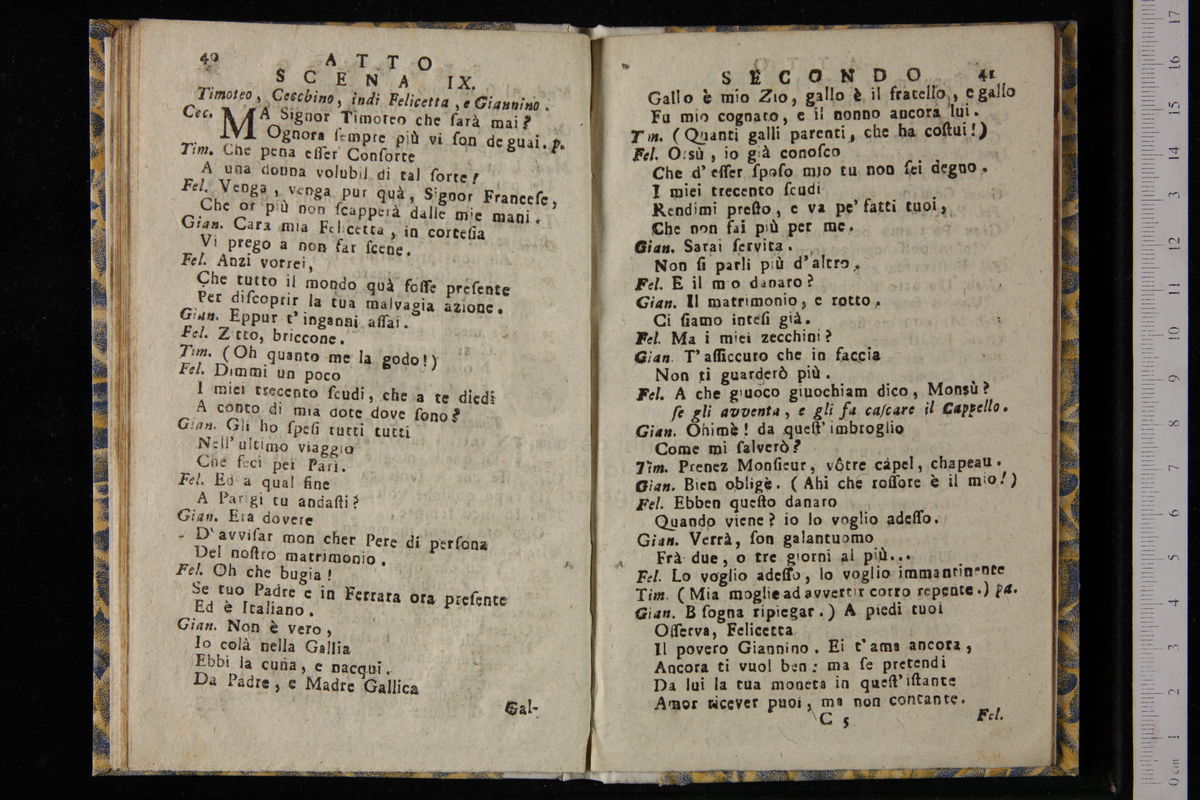 40 ATTO
SCENA IX.
Timoteo, Cecchino, indi Felicetta, e Giannino.
Cec. MA Signor Timoteo che sarà mai?
Ognora sempre più vi son de guai. p.
Tim. Che pena esser Consorte
A una donna volubil di tal sorte!
Fel. Venga, venga pur quà, Signor Francese,
Che or più non scapperà dalle mie mani.
Gian. Cara mia Felicetta, in cortesia
Vi prego a non far scene.
Fel. Anzi vorrei,
Che tutto il mondo quà fosse presente
Per discoprir la tua malvagia azione.
Gian. Eppur t'inganni assai.
Fel. Zitto, briccone.
Tim. (Oh quanto me la godo!)
Fel. Dimmi un poco
I miei trecento scudi, che a te diedi
A conto di mia dote dove sono?
Gian. Gli ho spesi tutti tutti
Nell'ultimo viaggio
Che feci per Pari.
Fel. Ed a qual fine
A Parigi tu andasti?
Gian. Era dovere
D'avvisar mon cher Pere di persona
Del nostro matrimonio.
Fel. Oh che bugia!
Se tuo Padre e in Ferrara ora presente
Ed è Italiano.
Gian. Non è vero,
Io colà nella Gallia
Ebbi la cuna, e nacqui.
Da Padre, e Madre Gallica
Gal-
SECONDO 41
Gallo è mio Zio, gallo è il fratello, e gallo
Fu mio cognato, e il nonno ancora lui.
Tim. (Quanti galli parenti, che ha costui!)
Fel. Orsù, io già conosco
Che d'esser sposo mio tu non sei degno.
I miei trecento scudi
Rendimi presto, e va pe' fatti tuoi,
Che non fai più per me.
Gian. Sarai servita.
Non si parli più d'altro.
Fel. E il mio danaro?
Gian. Il matrimonio, e rotto.
Ci siamo intesi già.
Fel. Ma i miei zecchini?
Gian. T'assiccuro che in faccia
Non ti guarderò più.
Fel. A che giuoco giuochiam dico, Monsù?
se gli avventa, e gli fa cascare il Cappello.
Gian. Ohimè! da quest'imbroglio
Come mi salverò?
Tim. Prenez Monsieur, vôtre càpel, chapeau.
Gian. Bien obligè. (Ahi che rossore è il mio!)
Fel. Ebben questo danaro
Quando viene? io lo voglio adesso.
Gian. Verrà, son galantuomo
Frà due, o tre giorni al più...
Fel. Lo voglio adesso, lo voglio immantinente
Tim. (Mia moglie ad avvertir corro repente.) pa.
Gian. B sogna ripiegar.) A piedi tuoi
Osserva, Felicetta
Il povero Giannino. Ei t'ama ancora,
Ancora ti vuol ben: ma se pretendi
Da lui la tua moneta in quest'istante
Amor ricever puoi, ma non contante.
C 5 Fel.